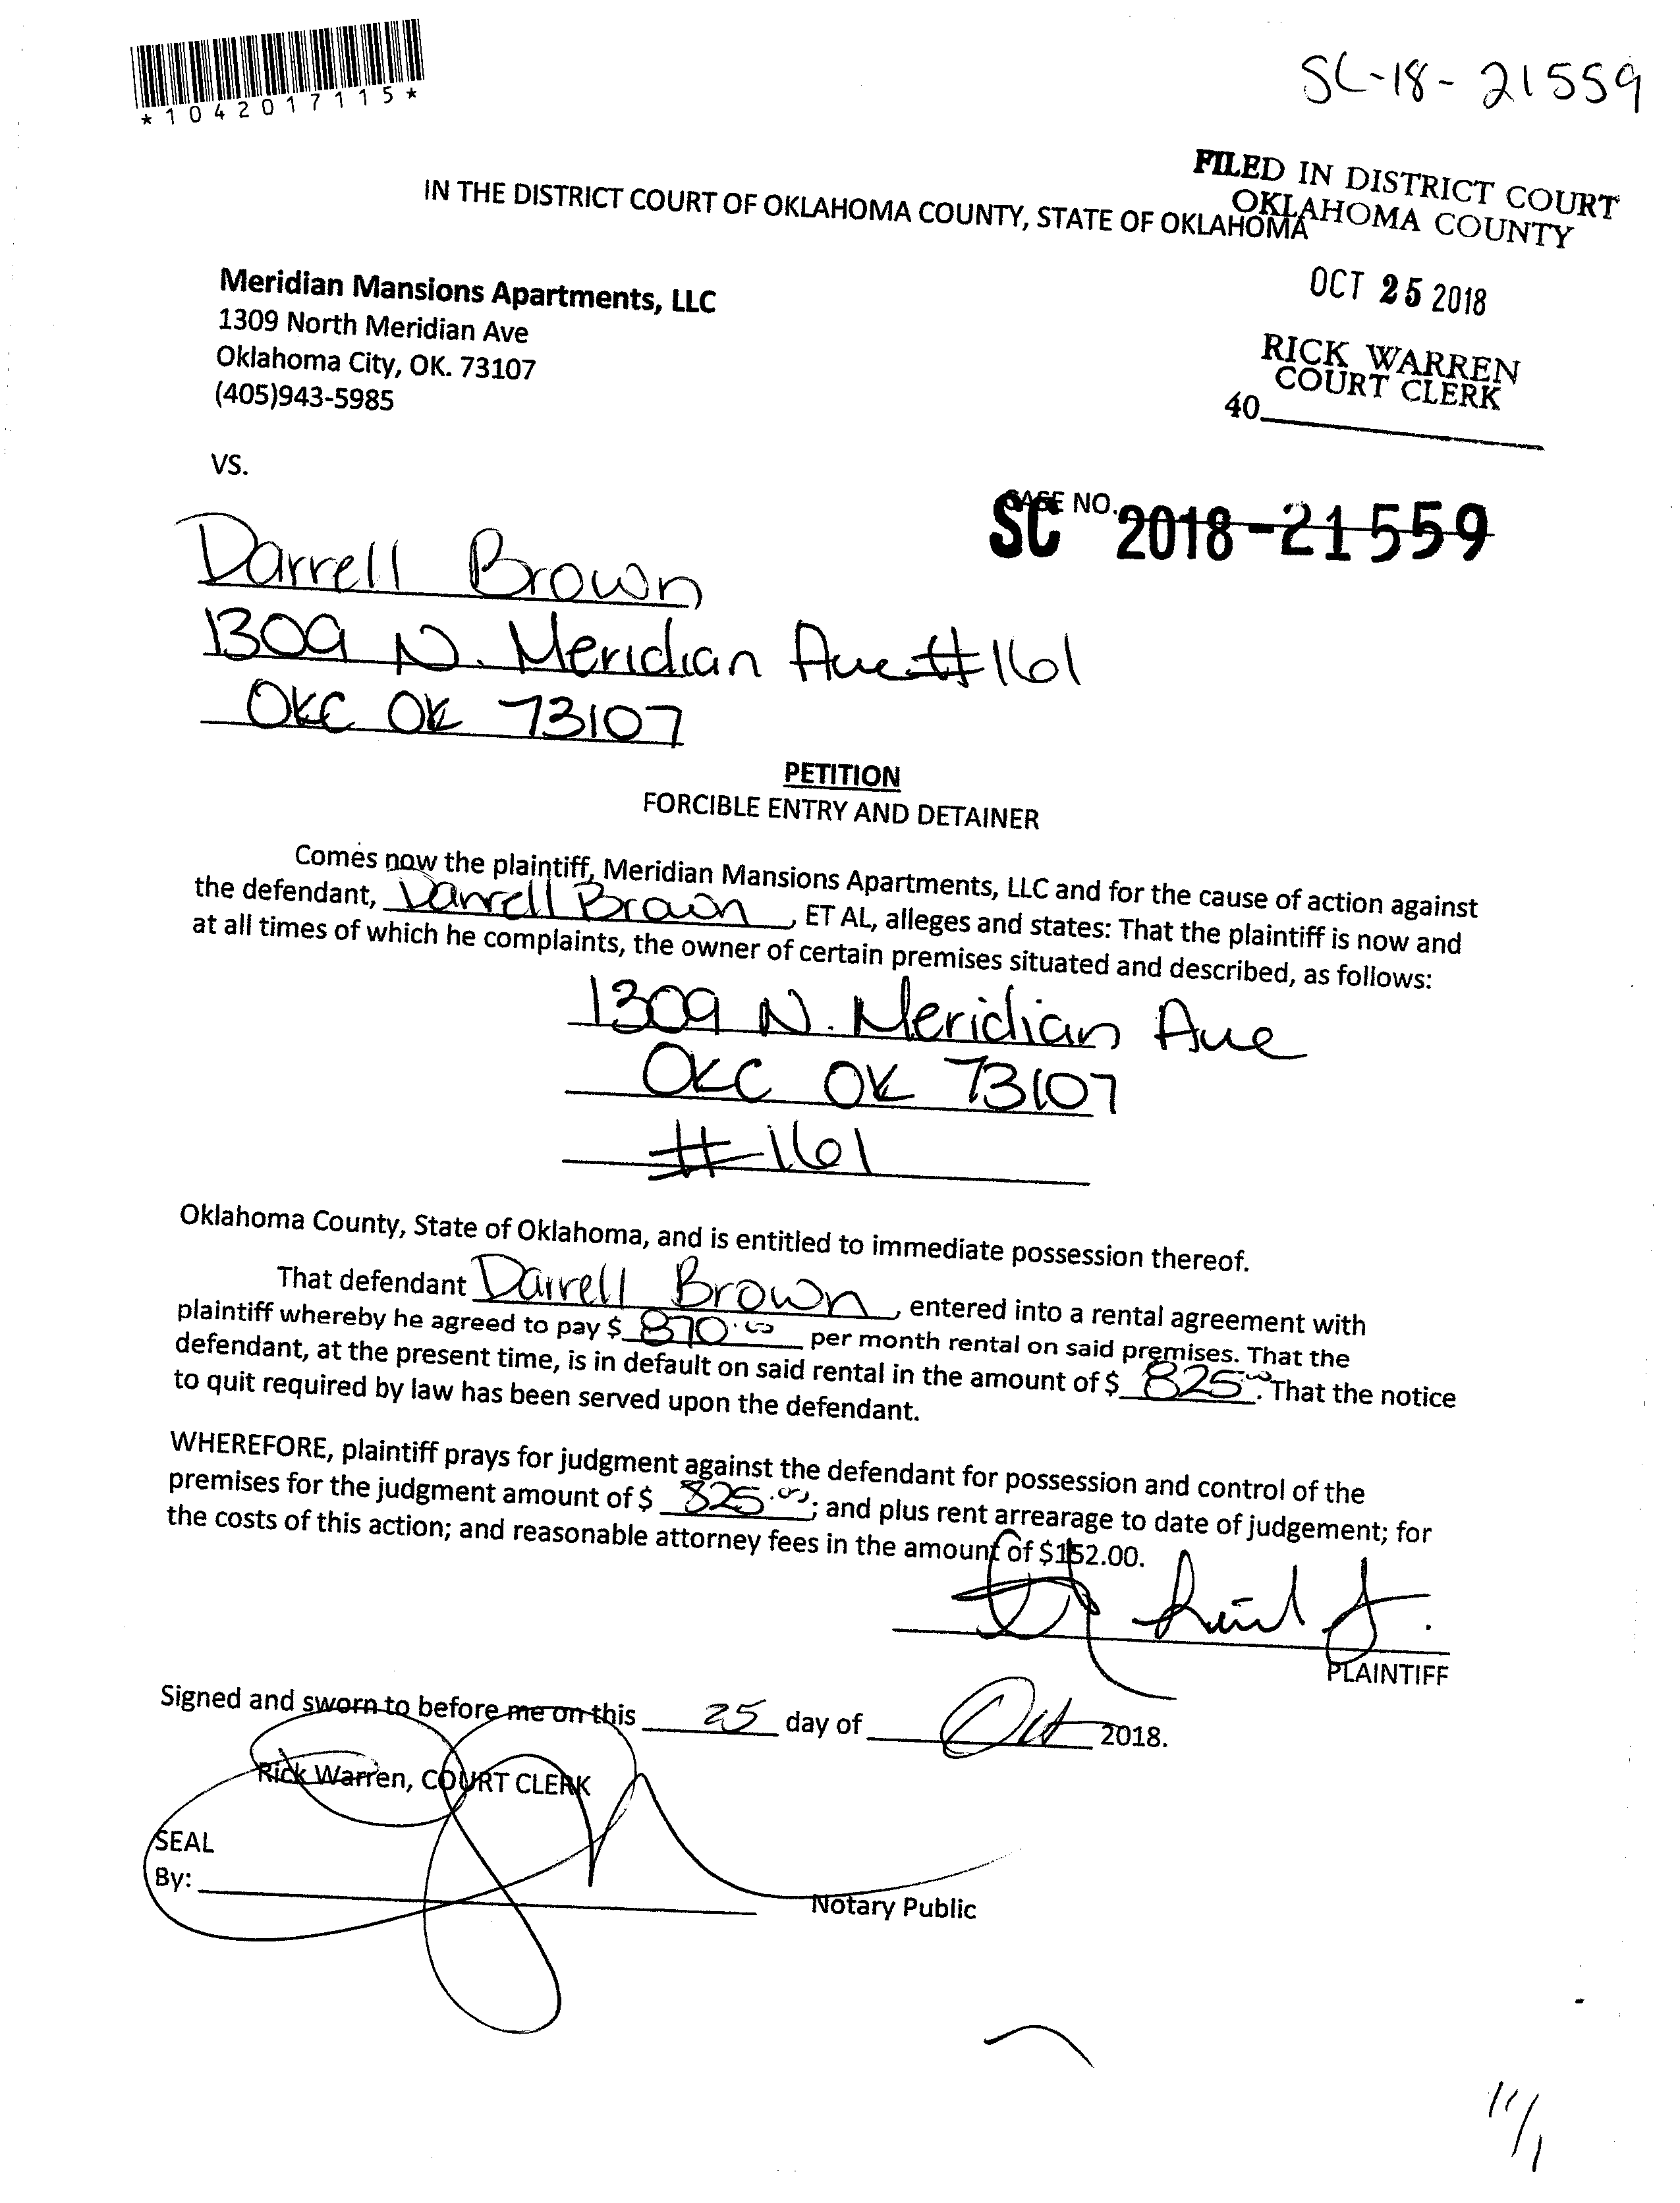 *1042017115*
SC-18-21559
FILED IN DISTRICT COURT
OKLAHOMA COUNTY
IN THE DISTRICT COURT OF OKLAHOMA COUNTY, STATE OF OKLAHOMA
OCT 25 2018
RICK WARREN
COURT CLERK
40
Meridian Mansions Apartments, LLC
1309 North Meridian Ave
Oklahoma City, OK. 73107
(405)943-5985
VS.
CASE NO.
SC 2018-21559
Darrell Brown
1309 N. Meridian Ave #161
OKC OK 73107
PETITION
FORCIBLE ENTRY AND DETAINER
Comes now the plaintiff, Meridian Mansions Apartments, LLC and for the cause of action against
the defendant, Darrell Brown, ET AL, alleges and states: That the plaintiff is now and
at all times of which he complaints, the owner of certain premises situated and described, as follows:
1309 N. Meridian Ave
OKC OK 73107
#161
Oklahoma County, State of Oklahoma, and is entitled to immediate possession thereof.
That defendant Darrell Brown, entered into a rental agreement with
plaintiff whereby he agreed to pay $ 870.00 per month rental on said premises. That the
defendant, at the present time, is in default on said rental in the amount of $ 825.00. That the notice
to quit required by law has been served upon the defendant.
WHEREFORE, plaintiff prays for judgment against the defendant for possession and control of the
premises for the judgment amount of $ 825.00; and plus rent arrearage to date of judgement; for
the costs of this action; and reasonable attorney fees in the amount of $152.00.
PLAINTIFF
Signed and sworn to before me on this 25 day of Oct 2018.
Rick Warren, COURT CLERK
SEAL
By:
Notary Public
11/1